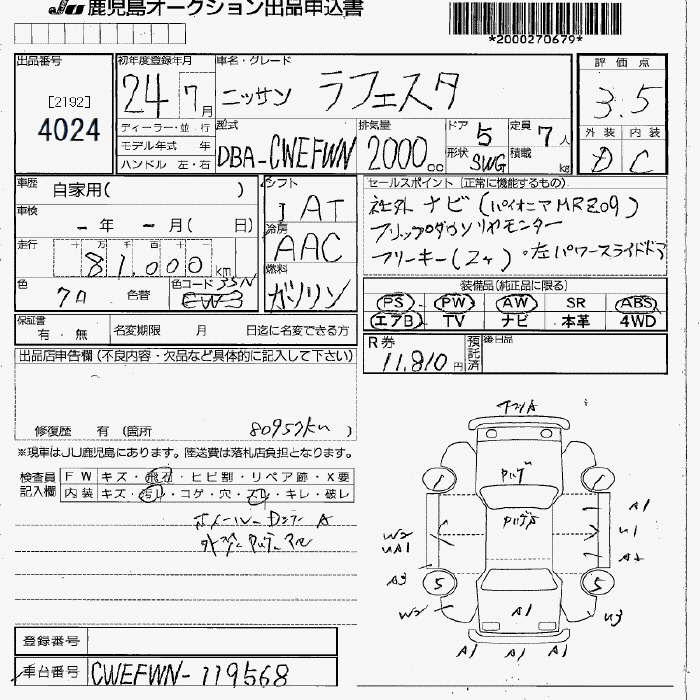 JU 鹿児島オークション出品申込書
*2000270679*
出品番号
[2192]
4024
初年度登録年月
24 7月
ディーラー・並 行
モデル年式 年
ハンドル 左・右
車名・グレード
ニッサン ラフェスタ
型式
DBA-CWEFWN
排気量
2000cc
ドア 5
形状 SWG
定員 7人
積載 kg
評価点
3.5
外装 内装
D C
車歴
自家用( )
車検
- 年 - 月( 日)
走行
十万千百十
81,000km
色
クロ
色替
色コード 35N
シフト
I AT
冷房
AAC
燃料
ガソリン
セールスポイント(正常に機能するもの)
社外 ナビ(パイオニアMRZ09)
フリップダウンリヤモニター
フリーキー(2ケ)・左パワースライドドア
装備品(純正品に限る)
PS PW AW SR ABS
エアB TV ナビ 本革 4WD
保証書
有 . 無
名変期限 月 日迄に名変できる方
R券
11,810円
預託済
後日品
出品店申告欄(不良内容・欠品など具体的に記入して下さい)
修復歴 有(箇所 80957km )
※現車はJU鹿児島にあります。陸送費は落札店負担となります。
検査員記入欄
FW キズ・飛石・ヒビ割・リペア跡・X要
内装 キズ・汚れ・コゲ・穴・スレ・キレ・破レ
A1
1 1
W2
UA1
A1
U1
A2
A3
5 5
W2
A1
U3
A1 A1 A1
登録番号
車台番号 CWEFWN-119568